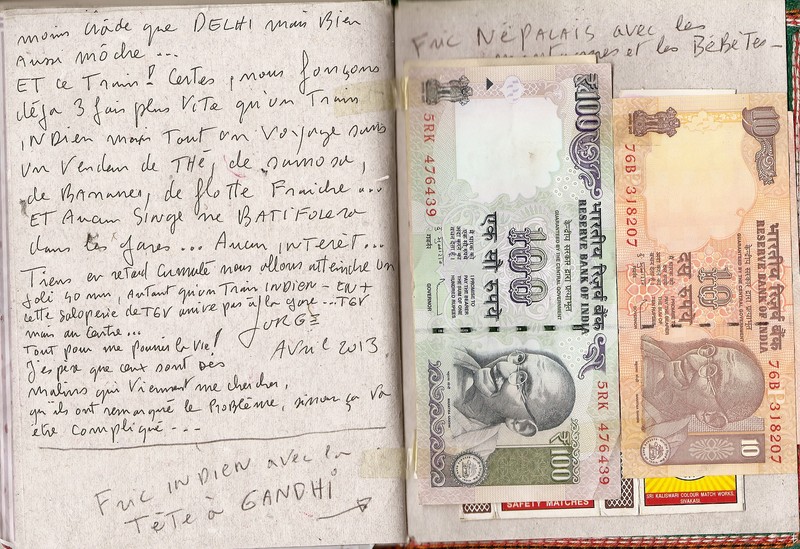 moins crâde que DELHI mais Bien
aussi môche ...
ET ce Train! Certes, nous fonçons
déja 3 fois plus Vite qu'un Train
INDIEN mais Tout un Voyage sans
un Vendeur de THÉ, de samosa,
de BANANES, de flotte Fraiche ...
ET Aucun Singe ne BATIFOLERA
dans les gares ... Aucun INTERÊT ...
Tiens en retard cumulé nous allons atteindre un
joli 40 mn. Autant qu'un Train INDIEN - EN +
cette saloperie de TGV arrive pas à la gare ... TGV
mais au Centre ...
JORGE
Tout pour me pourrir la vie!
AVRIL 2013
J'espère que ceux sont des
malins qui viennent me chercher,
qu'ils ont remarqué le Problème, sinon ça va
être compliqué ...
Fric INDIEN avec la
TÊTE à GANDHI
Fric NÉPALAIS avec les
et les BÉBÊTES -
₹100
5RK 476439
भारतीय रिज़र्व बैंक
RESERVE BANK OF INDIA
केन्द्रीय सरकार द्वारा प्रत्याभूत
GUARANTEED BY THE CENTRAL GOVERNMENT
100
एक सौ रुपये
I PROMISE TO
PAY THE BEARER
THE SUM OF ONE
HUNDRED RUPEES
GOVERNOR
5RK 476439
₹100
10
76B 318207
भारतीय रिज़र्व बैंक
RESERVE BANK OF INDIA
केन्द्रीय सरकार द्वारा प्रत्याभूत
GUARANTEED BY THE CENTRAL GOVERNMENT
10
दस रुपये
76B 318207
10
SAFETY MATCHES
SRI KALISWARI COLOUR MATCH WORKS,
SIVAKASI.